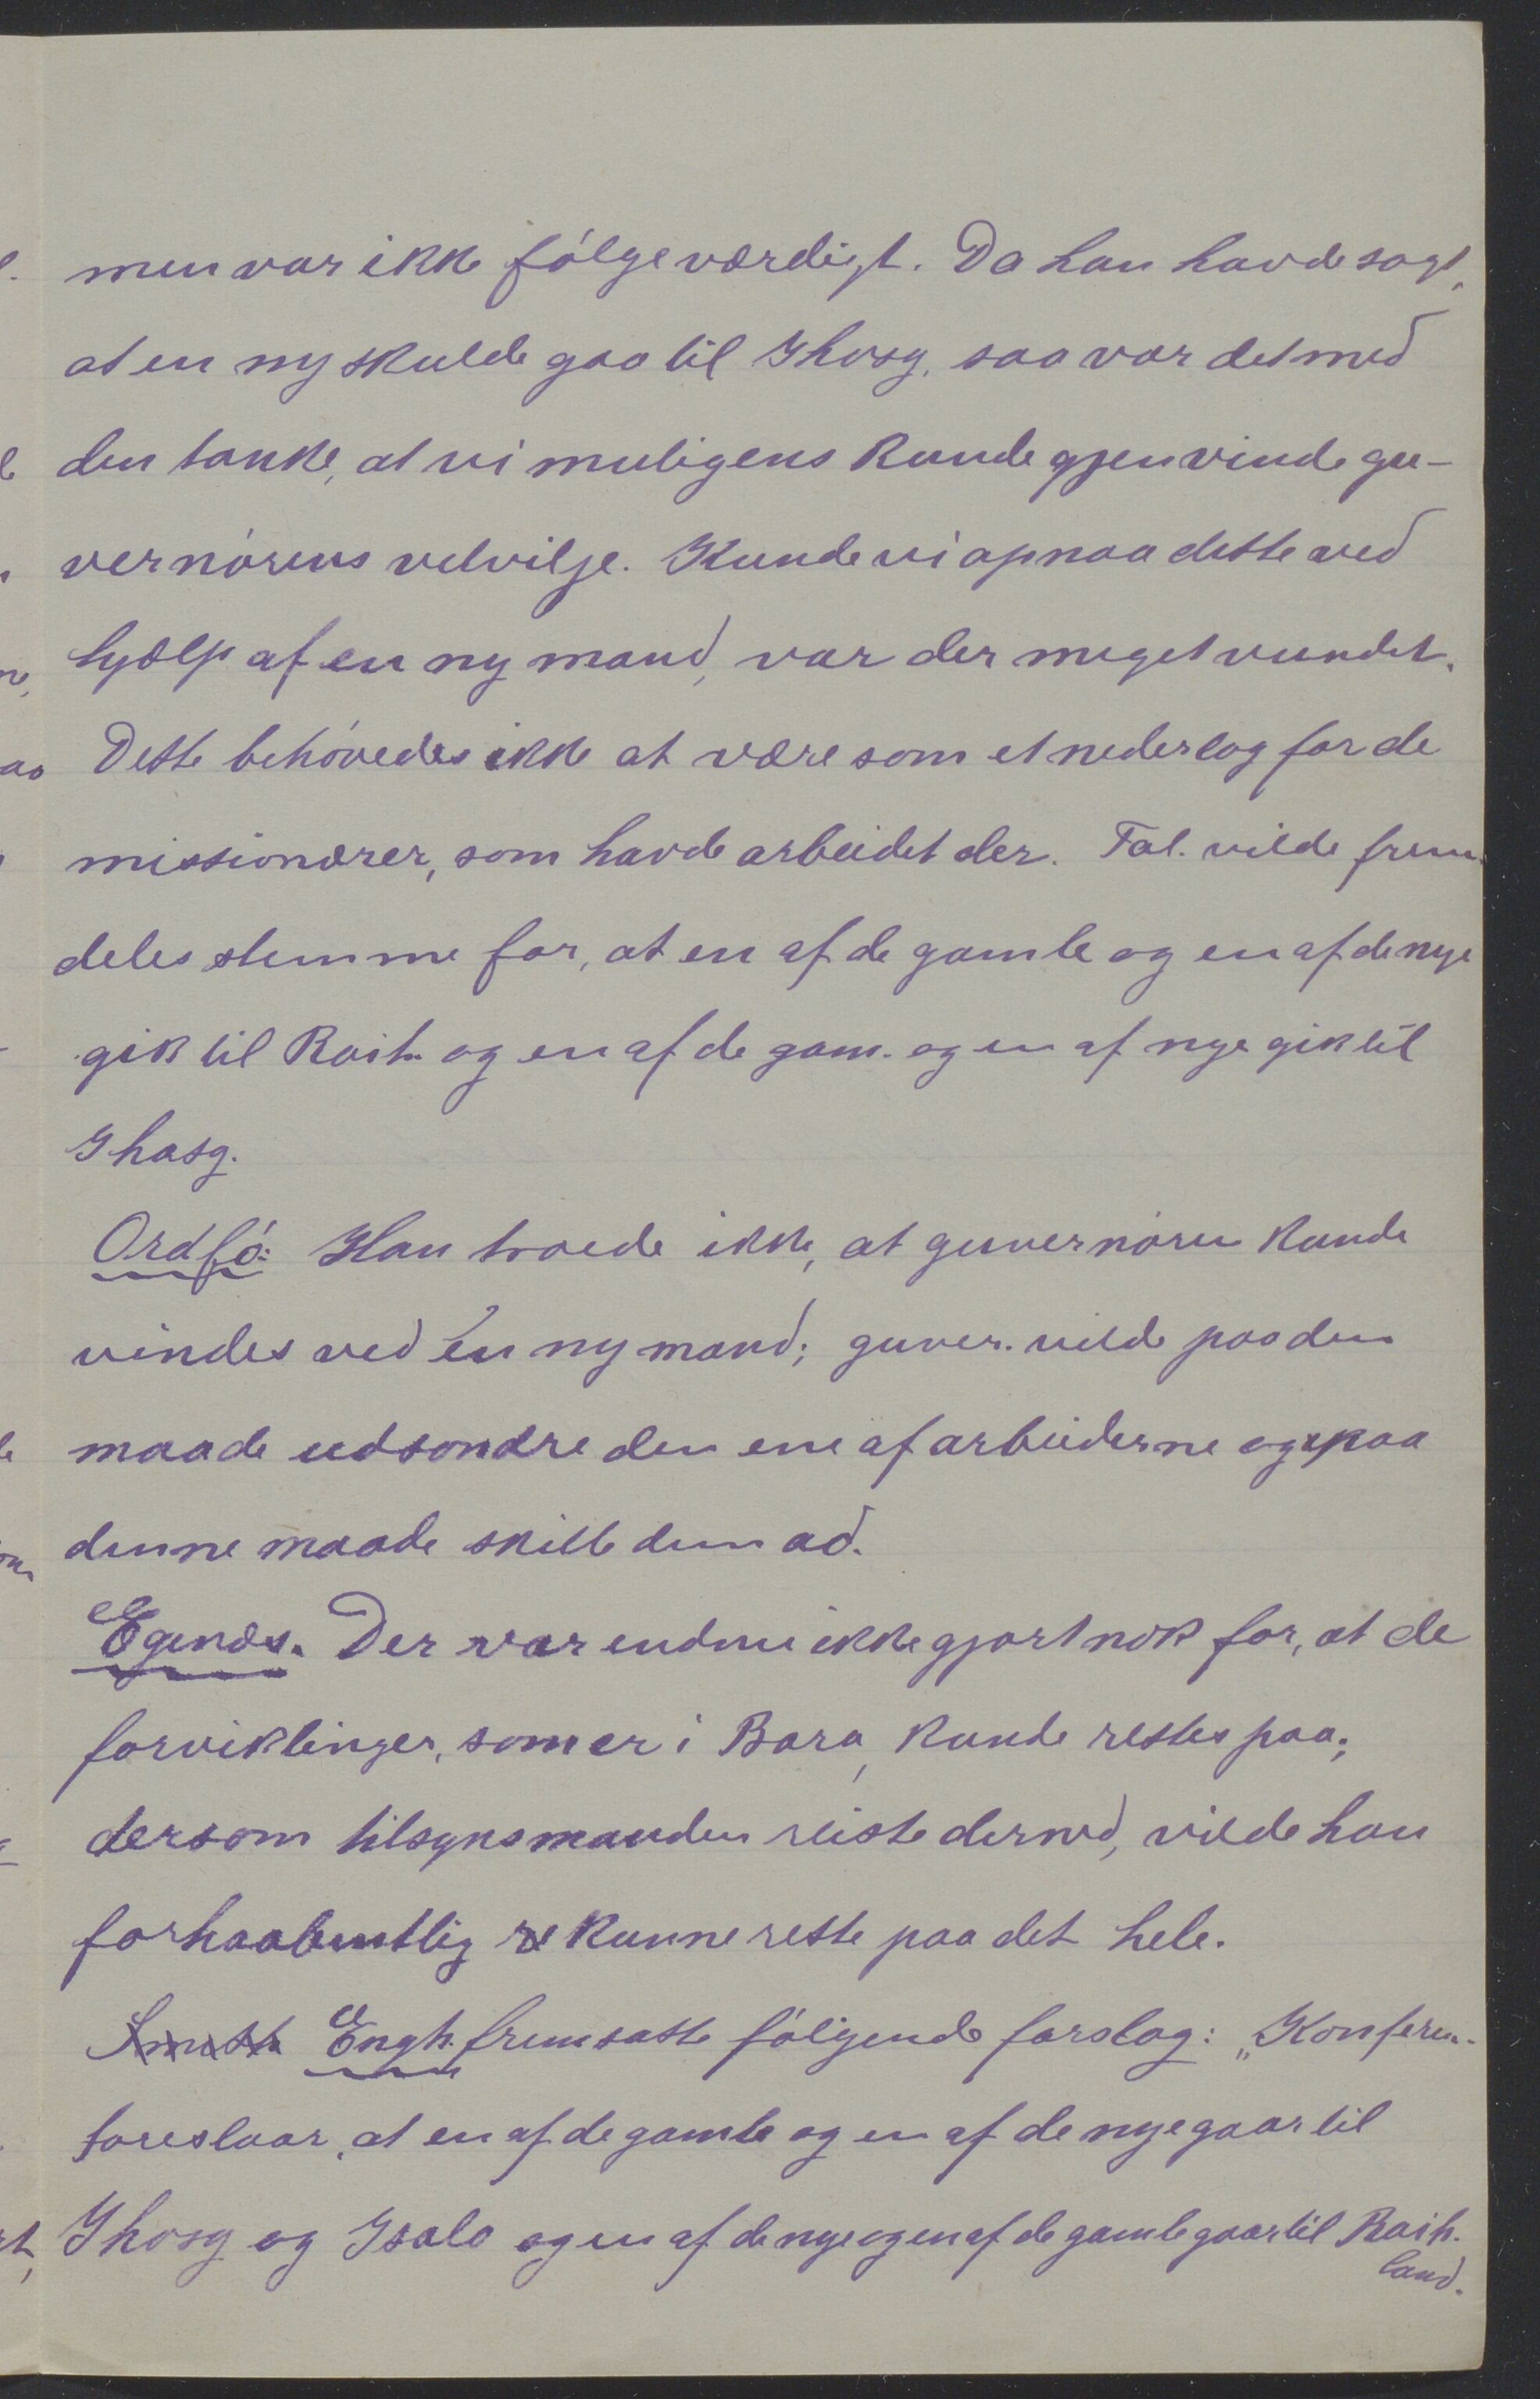 men var ikke følgeværdigt. Da han havde sagt,
at en ny skulde gaa til Ihosy, saa var det med
den tanke, at vi muligens kunde gjenvinde gu-
vernørens velvilje. Kunde vi opnaa dette ved
hjælp af en ny mand, var der meget vundet.
Dette behøvedes ikke at være som et nederlag for de
missionærer, som havde arbeidet der. Tal. vilde frem-
deles stemme for, at en af de gamle og en af de nye
gik til Raih. og en af de gam. og en af nye gik til
Ihosy.
Ordfø: Han troede ikke, at guvernøren kunde
vindes ved én ny mand; guver. vilde paa den
maade udsondre den ene af arbeiderne og paa
denne maade skille dem ad.
Egenæs. Der var endnu ikke gjort nok for, at de
forviklinger, som er i Bara, kunde rettes paa;
dersom tilsynsmanden reiste derned, vilde han
forhaabentlig kunne rette paa det hele.
Engh. fremsatte følgende forslag: "Konferen-
foreslaar, at en af de gamle og en af de nye gaar til
Ihosy og Isalo og en af de nye og en af de gamle gaar til Raih.
land.